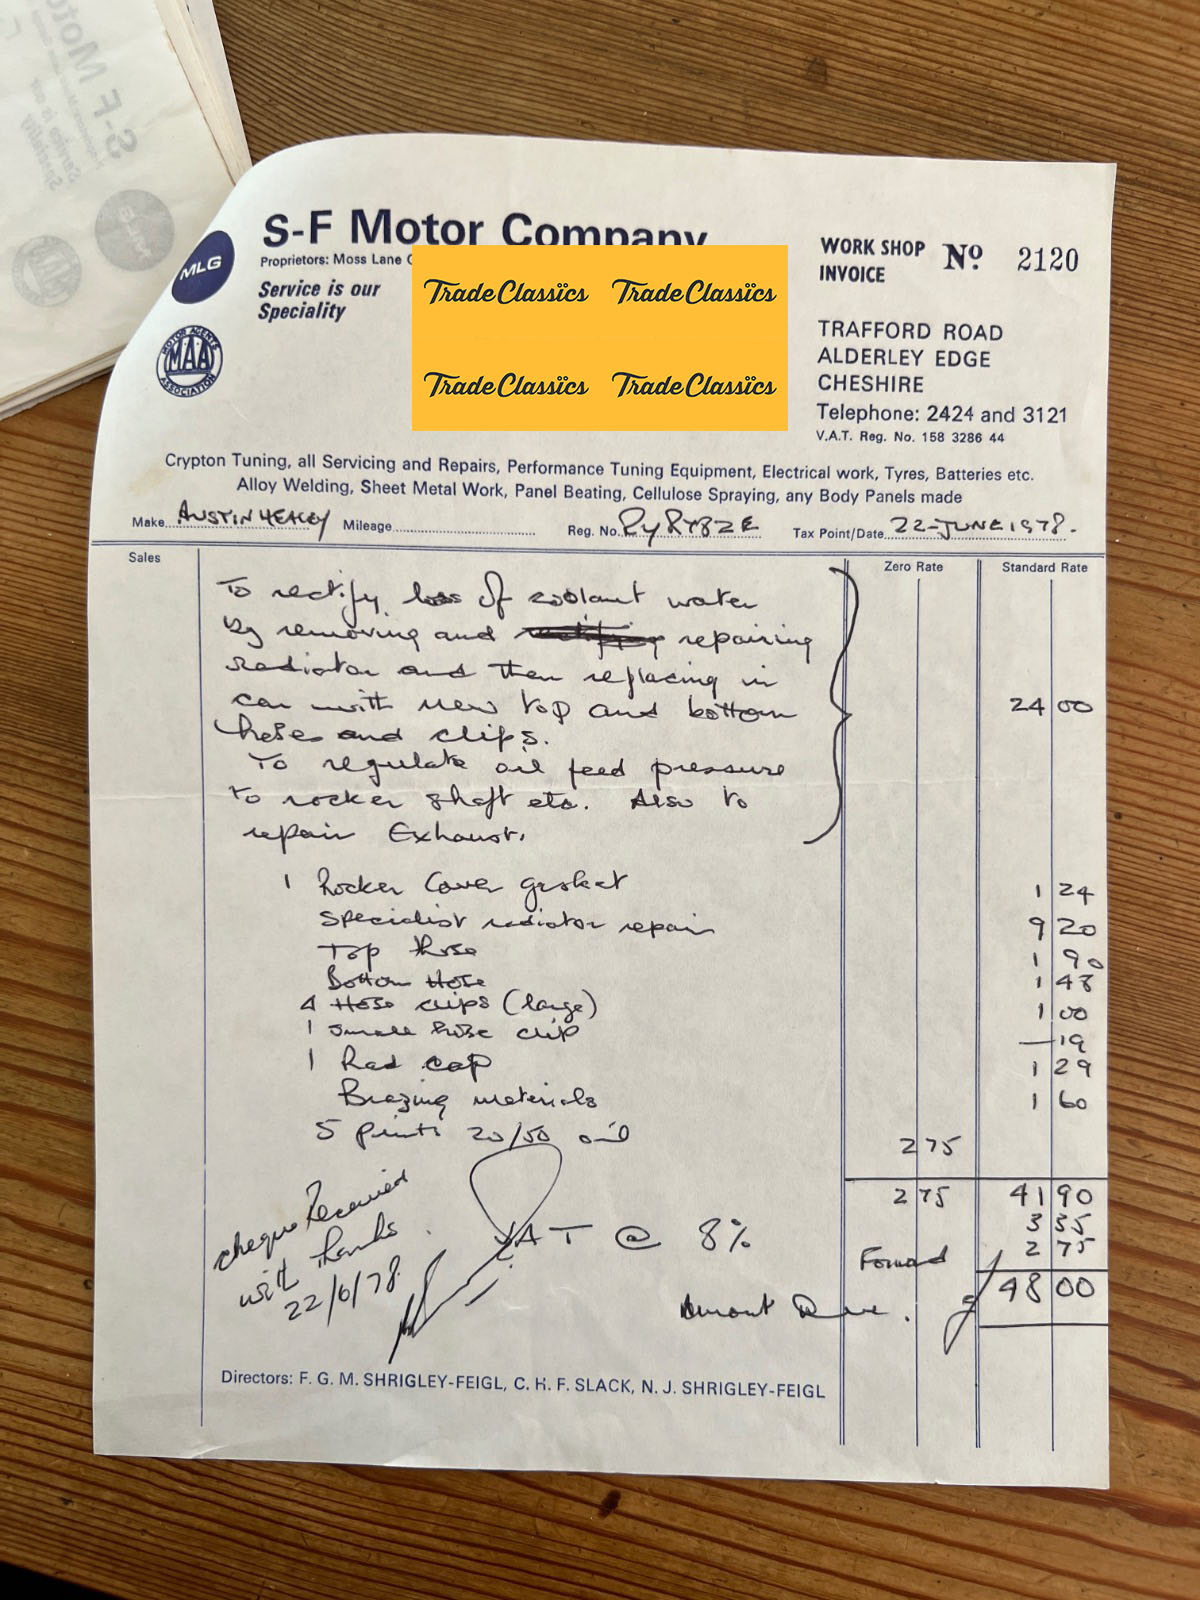 S-F Motor Company
Proprietors: Moss Lane
Service is our
Speciality
MLG
MOTOR AGENTS
MAA
ASSOCIATION
TradeClassics TradeClassics
TradeClassics TradeClassics
WORK SHOP
INVOICE
Nº 2120
TRAFFORD ROAD
ALDERLEY EDGE
CHESHIRE
Telephone: 2424 and 3121
V.A.T. Reg. No. 158 3286 44
Crypton Tuning, all Servicing and Repairs, Performance Tuning Equipment, Electrical work, Tyres, Batteries etc.
Alloy Welding, Sheet Metal Work, Panel Beating, Cellulose Spraying, any Body Panels made
Make AUSTIN HEALEY Mileage Reg. No. Tax Point/Date 22-JUNE 1978.
Sales Zero Rate Standard Rate
To rectify loss of coolant water
by removing and repairing
radiator and then replacing in
car with new top and bottom 24 00
hoses and clips.
To regulate oil feed pressure
to rocker shaft etc. Also to
repair Exhaust.
1 Rocker Cover gasket 1 24
Specialist radiator repair 9 20
Top Hose 1 90
Bottom Hose 1 48
4 Hose clips (large) 1 00
1 small hose clip — 19
1 Rad cap 1 29
Brazing materials 1 60
5 pints 20/50 oil 2 75
2 75 41 90
VAT @ 8% 3 35
Forward 2 75
Amount Due. 48 00
cheque Received
with thanks
22/6/78
Directors: F. G. M. SHRIGLEY-FEIGL, C. H. F. SLACK, N. J. SHRIGLEY-FEIGL